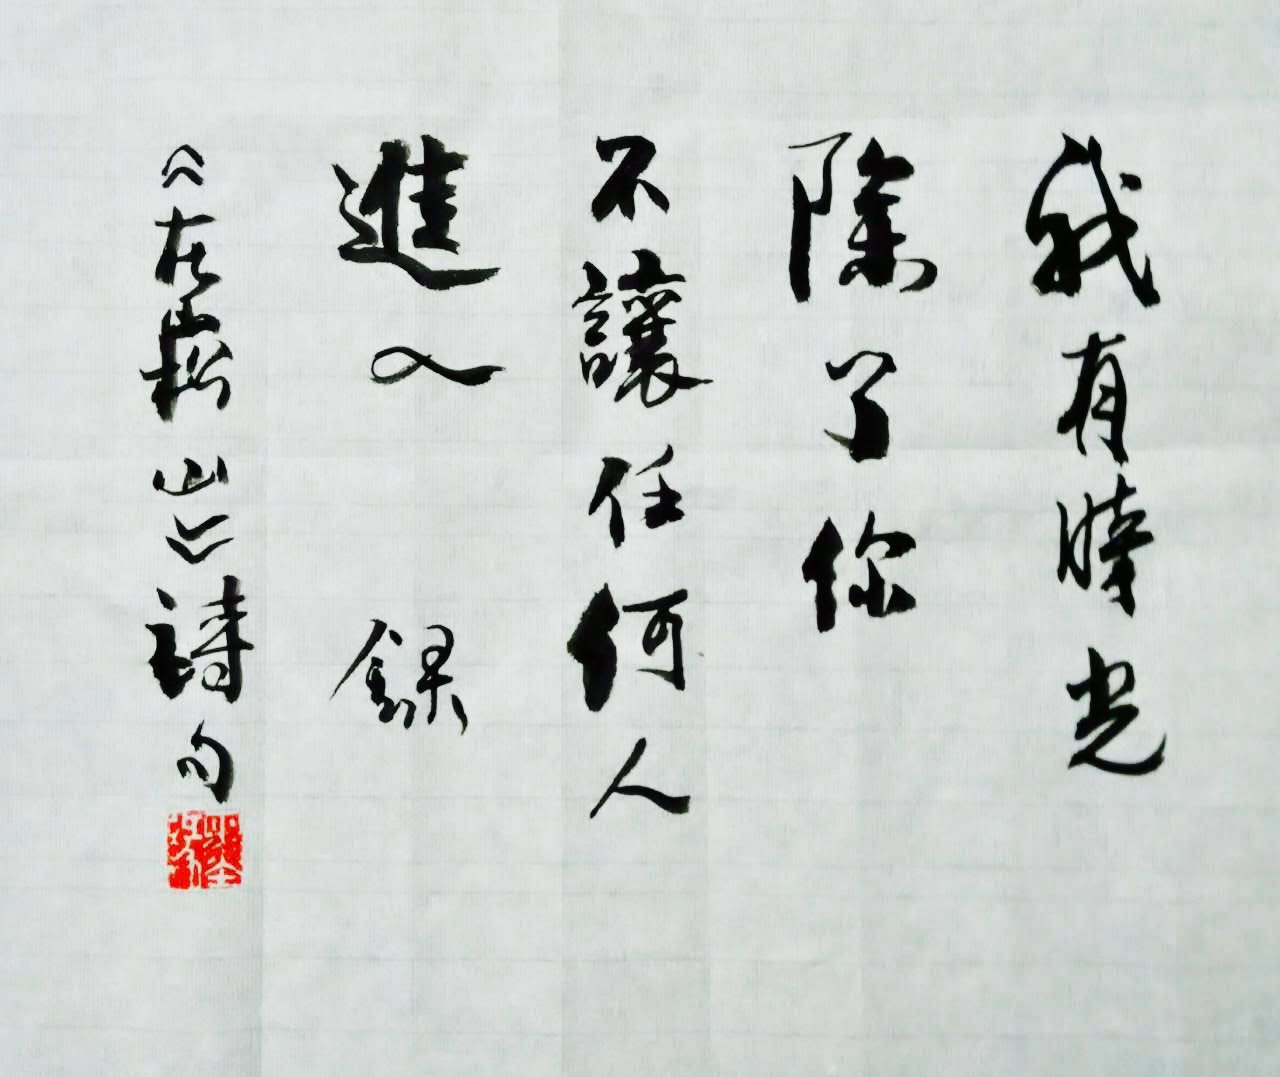 我有時光
除了你
不讓任何人
進入 錄
《在嵩山》詩句